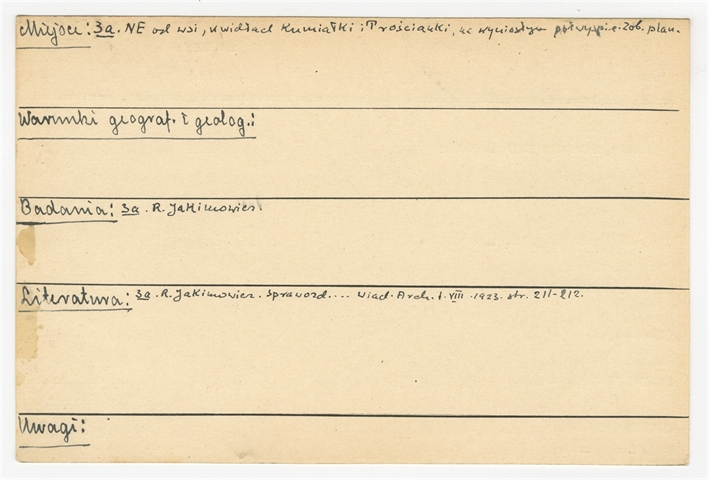 Miejsce: 3a. NE od wsi, w widłach Kumiałki i Prościanki, na wyniosłym półwyspie. Zob. plan.
Warunki geograf. i geolog.:
Badania: 3a. R. Jakimowicz.
Literatura: 3a. R. Jakimowicz. Sprawozd.... Wiad. Arch. t. VIII. 1923. str. 211-212.
Uwagi: